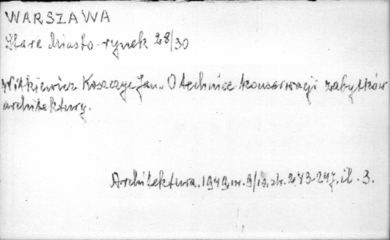 WARSZAWA
Stare Miasto - rynek 28/30
Witkiewicz Koszczyc Jan. O technice konserwacji zabytków
architektury.
Architektura. 1949, nr. 9/10, str. 273-297, il. 3.